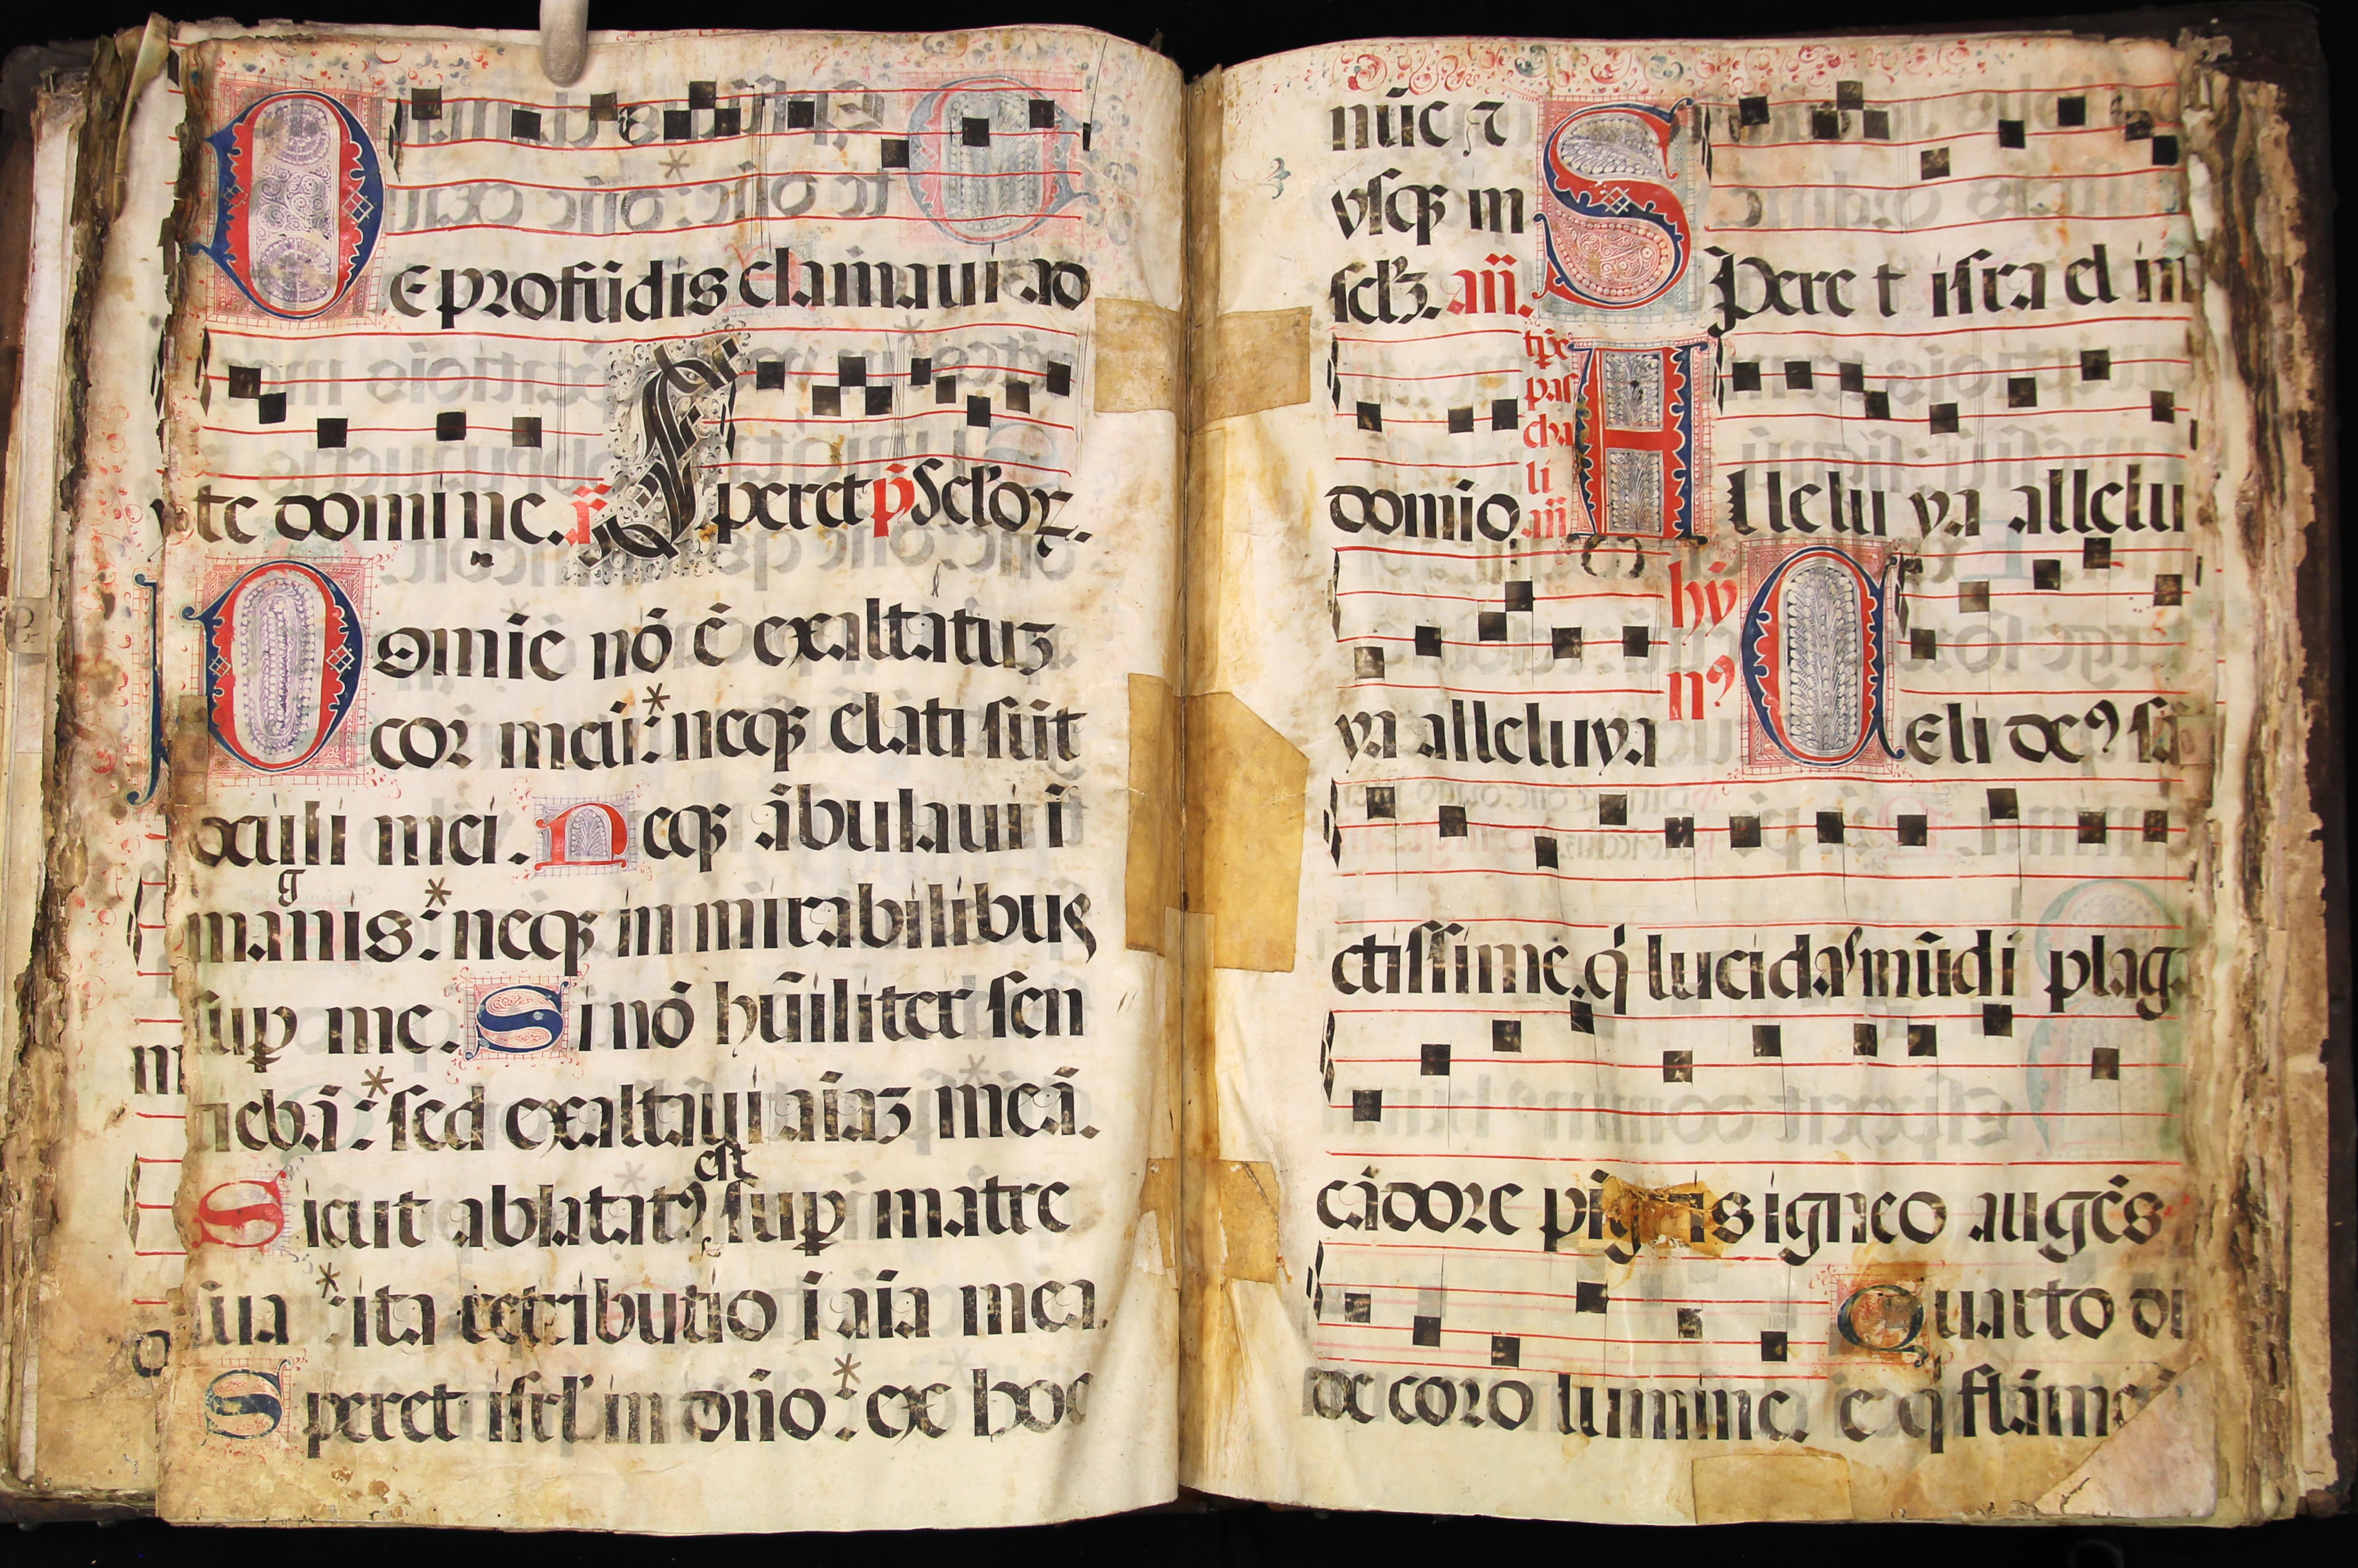 DE profūdis clamaui ad
te domine. r̃. Speret p̃s Sclꝝ.
Domīe nō ē exaltatuꝫ
cor meū: * neqꝫ elati sūt
oculi mei. Neqꝫ ābulaui ī
magnis: * neqꝫ in mirabilibus
suꝑ me. Si nō hūiliter sen
tiebā: * sed exaltaui aīaꝫ meā.
Sicut ablatatꝰ est suꝑ matre
sua: * ita retributio ī aīa mea.
Speret isrl' in dño: * ex hoc
nūc ⁊
vsqꝫ in
sclꝫ. añ. Speret israel in
domio. tp̄e pascha li añ Alleluya allelu
ya alleluya hȳnꝰ Celi deꝰ sā
ctissime. q̇ lucidas mūdi plag
cādore pi g is igneo augēs
decoro lumine. Quarto di
e q̇ flāme